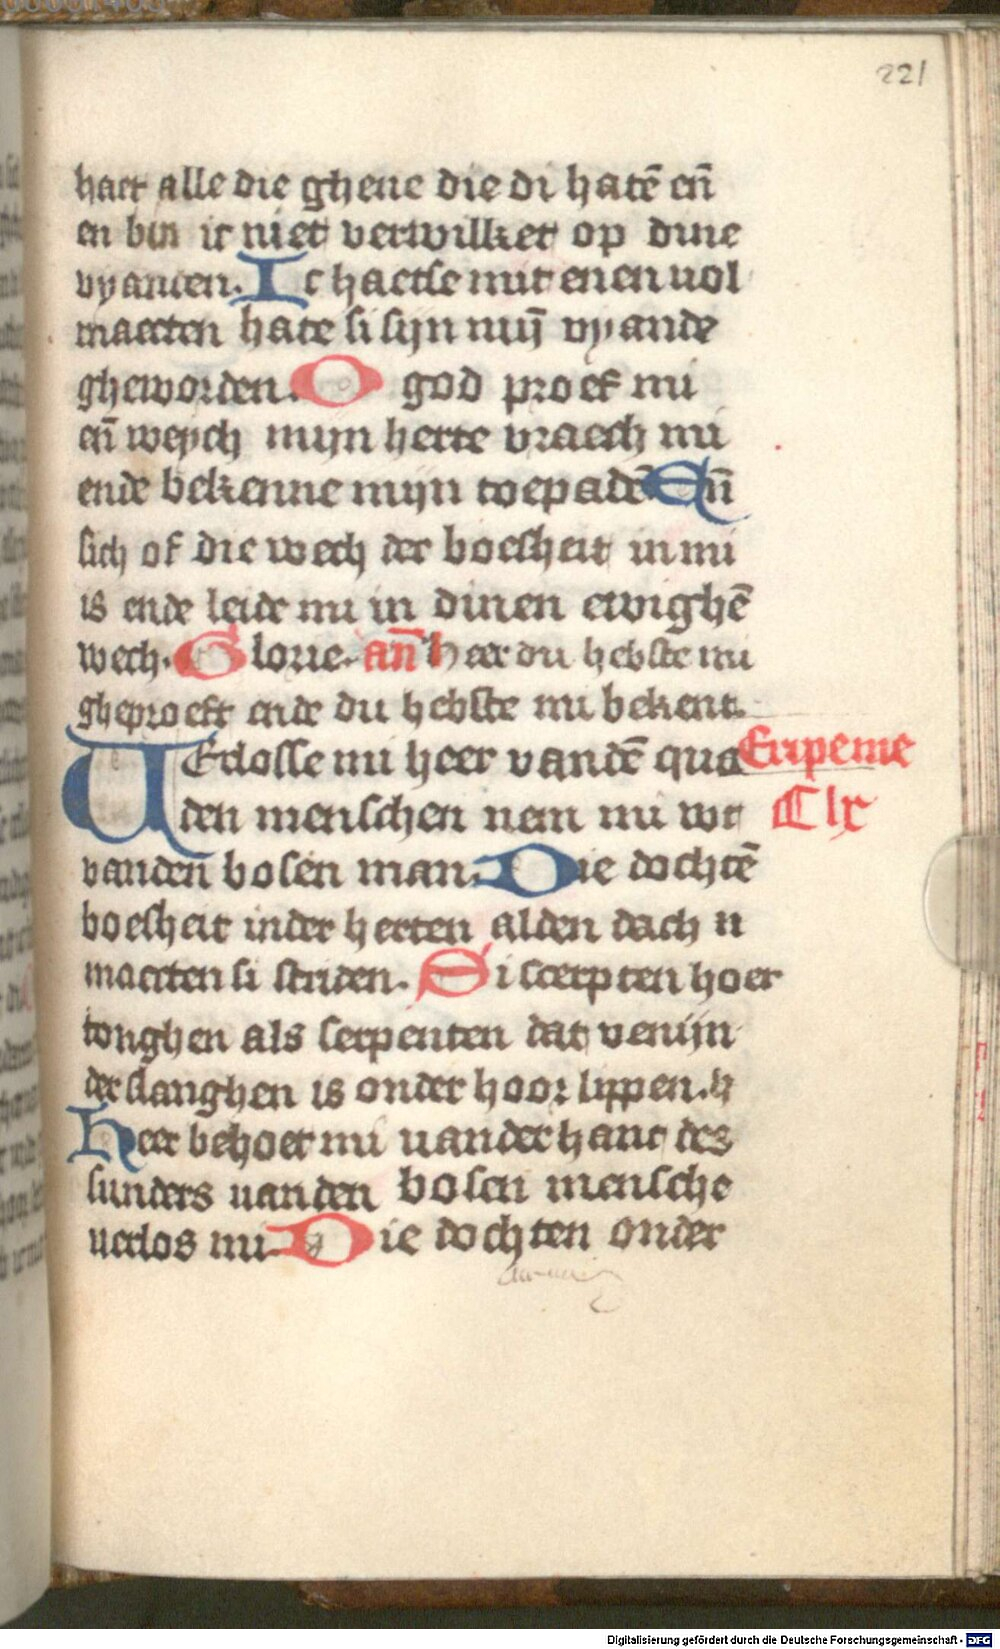 221
haet alle die ghene die di hatē en̄
en bin ic niet verwilket op dine
vyanden. Ic haetse mit enen vol
maecten hate si sijn mijn̄ vyande
gheworden. O god proef mi
en̄ weych mijn herte vraech mi
ende bekenne mijn toepadē En̄
sich of die wech der boesheit in mi
is ende leide mi in dinen ewighē
wech. Glorie. an̄ Heer du hebste mi
gheproeft ende du hebste mi bekent.
VErlosse mi heer vandē qua Eripe me
den menschen nem mi wt C lx
vanden bosen man. Die dochtē
boesheit inder herten alden dach
maecten si striden. Si scerpten hoer
tonghen als serpenten dat venijn
der slanghen is onder hoor lippen.
Heer behoet mi vander hant des
sunders vanden bosen mensche
verlos mi. Die dochten onder
Digitalisierung gefördert durch die Deutsche Forschungsgemeinschaft - DFG